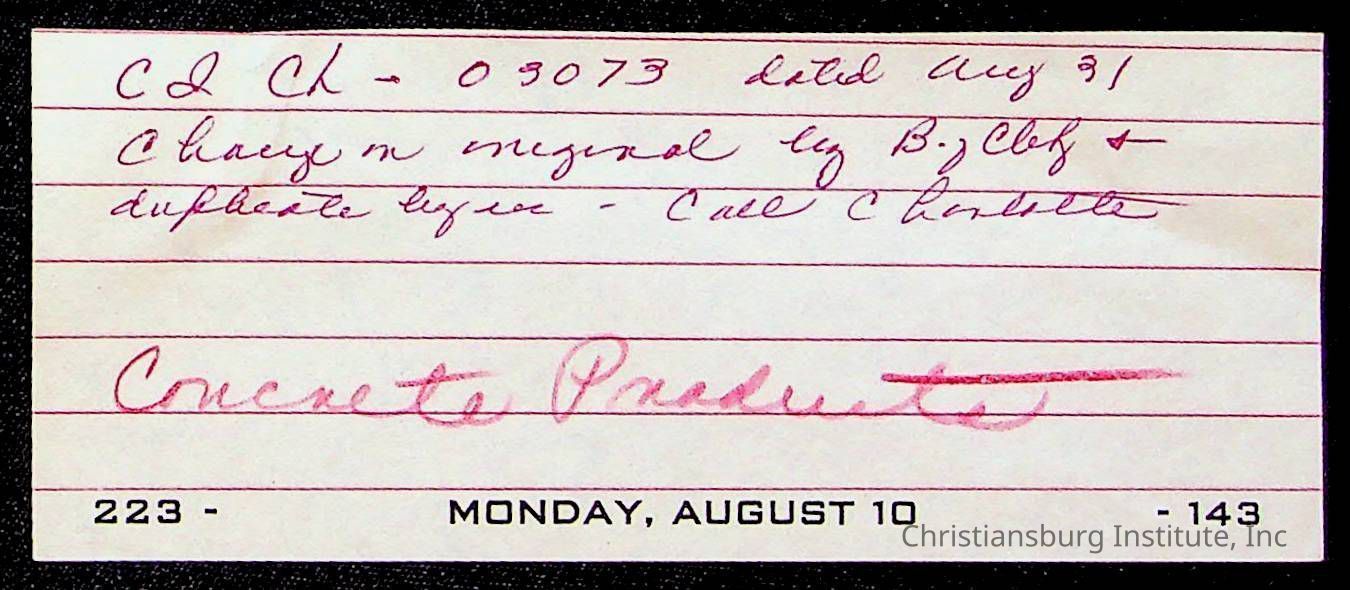 CI Ch - 03073 dated Aug 31
Change on original by B. &
duplicate by us - Call Charlotte
Concrete Products
223 - MONDAY, AUGUST 10 - 143
Christiansburg Institute, Inc